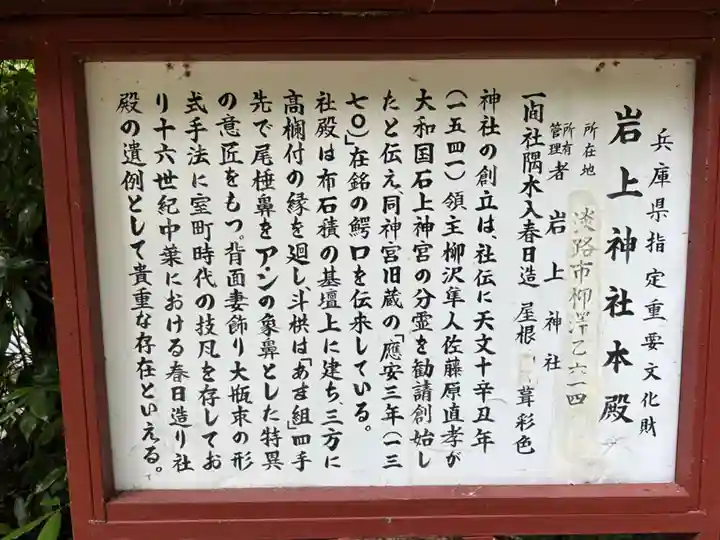 兵庫県指定重要文化財
岩上神社本殿
所在地 淡路市柳澤乙六一四
所有
管理者 岩上神社
一间社隅木入春日造 屋根 葺彩色
神社の創立は、社伝に天文十辛丑年
(一五四一)領主柳沢隼人佐藤原直孝が
大和国石上神宮の分霊を勧請創始し
たと伝え、同神宮旧蔵の「應安三年(一三
七〇)」在銘の鰐口を伝来している。
社殿は布石積の基壇上に建ち、三方に
高欄付の縁を廻し斗栱は「あま組」四手
先で尾棰鼻をアンの象鼻とした特異
の意匠をもつ。背面妻飾り大瓶束の形
式手法に室町時代の技凡を存してお
り十六世紀中葉における春日造り社
殿の遺例として貴重な存在といえる。